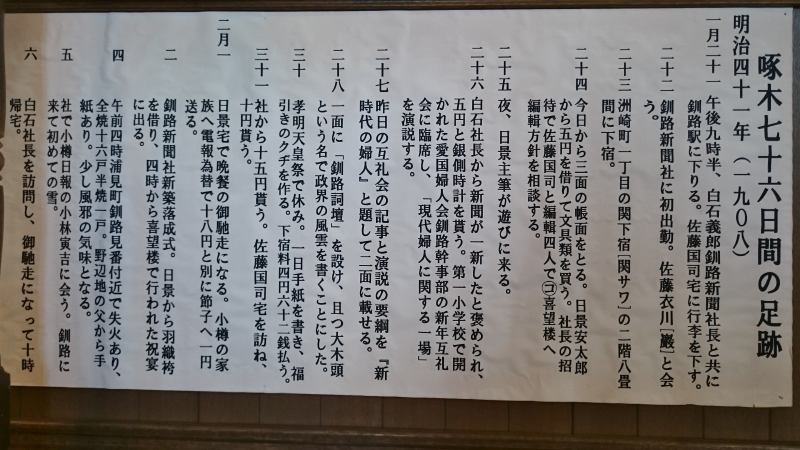 啄木七十六日間の足跡
明治四十一年（一九〇八）
一月二十一　午後九時半、白石義郎釧路新聞社長と共に
釧路駅に下りる。佐藤国司宅に行李を下す。
二十二　釧路新聞社に初出勤。佐藤衣川［巌］と会
う。
二十三　洲崎町一丁目の関下宿［関サワ］の二階八畳
間に下宿。
二十四　今日から三面の帳面をとる。日景安太郎
から五円を借りて文具類を買う。社長の招
待で佐藤国司と編輯四人で㋙喜望楼へ
編輯方針を相談する。
二十五　夜、日景主筆が遊びに来る。
二十六　白石社長から新聞が一新したと褒められ、
五円と銀側時計を貰う。第一小学校で開
かれた愛国婦人会釧路幹事部の新年互礼
会に臨席し、「現代婦人に関する一場」
を演説する。
二十七　昨日の互礼会の記事と演説の要綱を『新
時代の婦人』と題して二面に載せる。
二十八　一面に「釧路詞壇」を設け、且つ大木頭
という名で政界の風雲を書くことにした。
三十　孝明天皇祭で休み。一日手紙を書き、福
引きのクヂを作る。下宿料四円六十二銭払う。
三十一　社から十五円貰う。佐藤国司宅を訪ね、
十円貰う。
二月一　日景宅で晩餐の御馳走になる。小樽の家
族へ電報為替で十八円と別に節子へ一円
送る。
二　釧路新聞社新築落成式。日景から羽織袴
を借り、四時から喜望楼で行われた祝宴
に出る。
四　午前四時浦見町釧路見番付近で失火あり、
全焼十六戸半焼一戸。野辺地の父から手
紙あり。少し風邪の気味となる。
五　社で小樽日報の小林寅吉に会う。釧路に
来て初めての雪。
六　白石社長を訪問し、御馳走になって十時
帰宅。